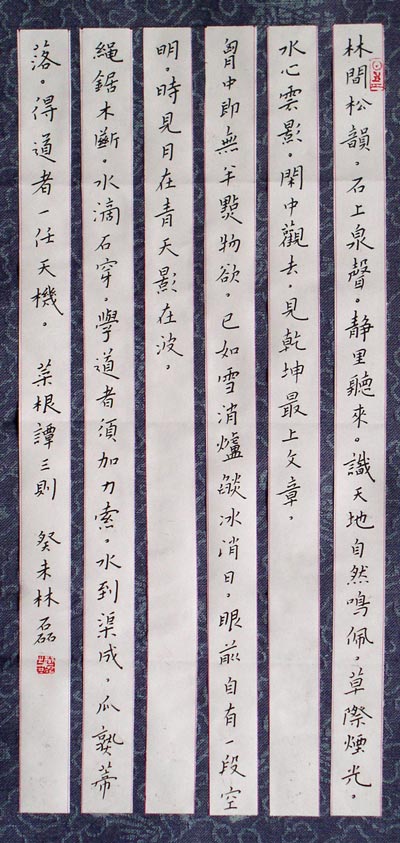 林間松韻，石上泉聲。静里聽來。識天地自然鳴佩。草際煙光，
水心雲影。閑中觀去，見乾坤最上文章，
胷中即無半點物欲，已如雪消爐燄冰消日，眼前自有一段空
明。時見月在青天影在波，
繩鋸木斷。水滴石穿，學道者須加力索。水到渠成，瓜熟蒂
落。得道者一任天機。 菜根譚三則 癸未林磊